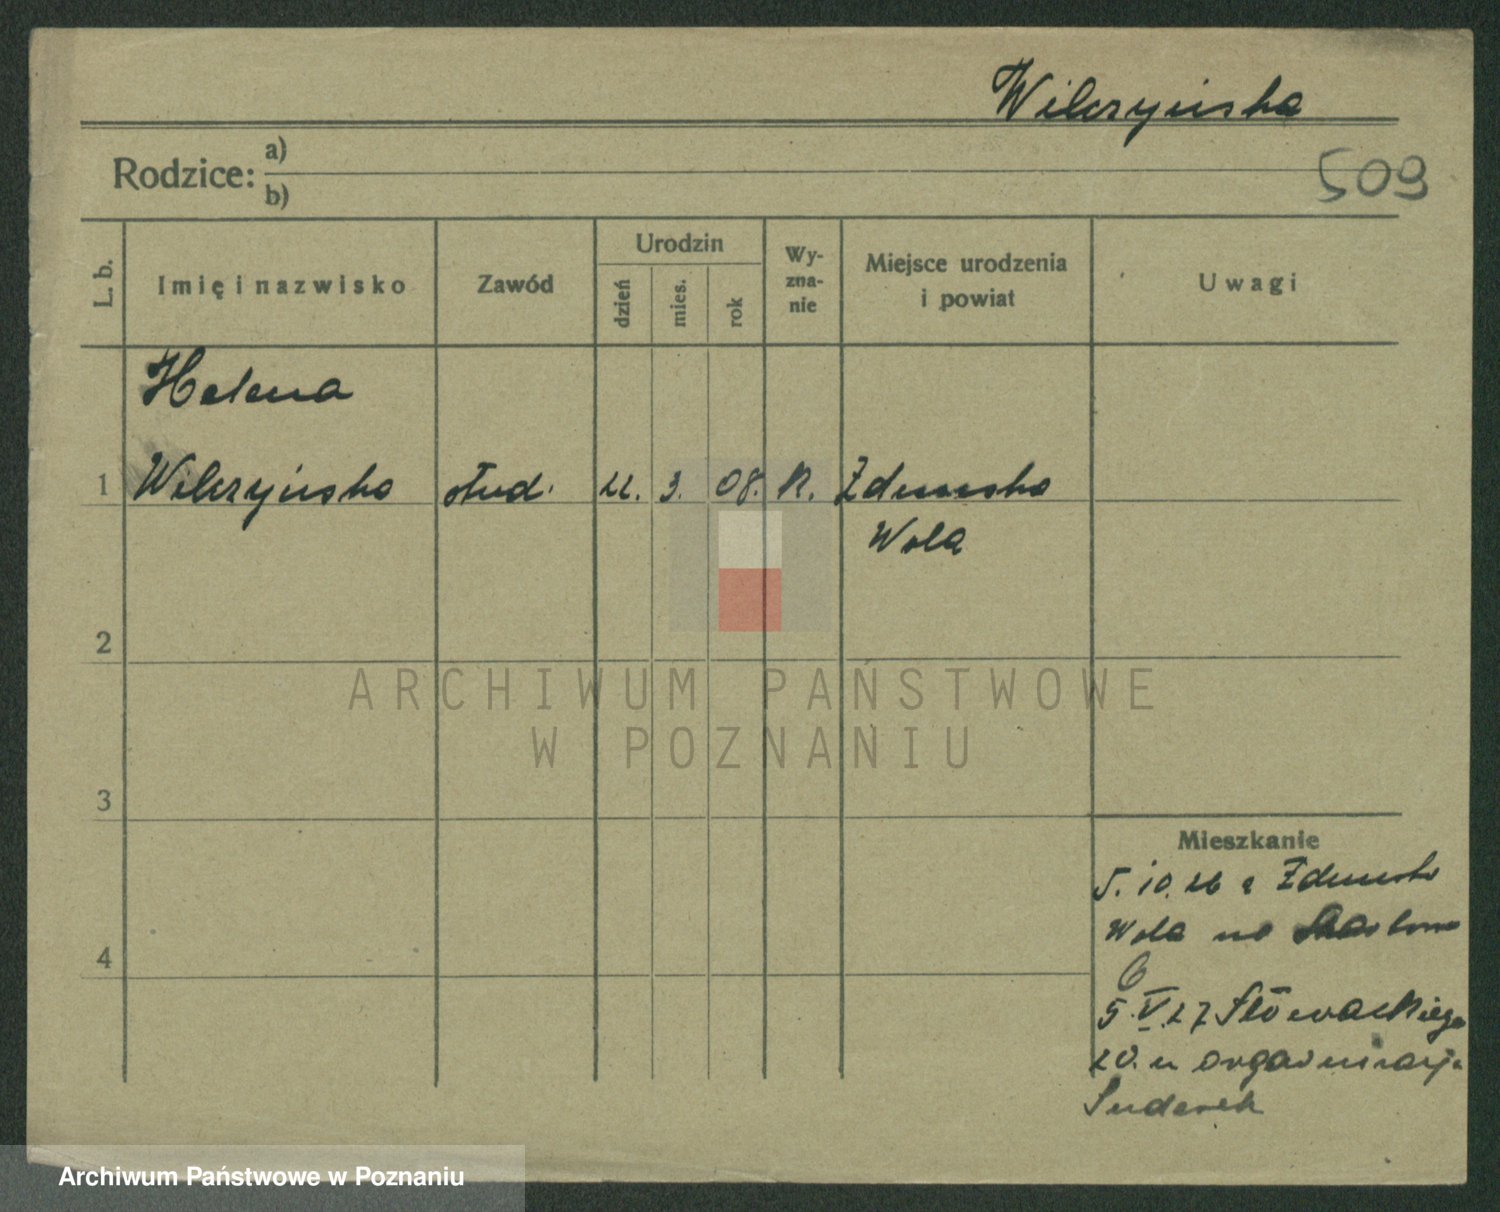 Wilczyńska
Rodzice: a)
b)
509
L. b.
Imię i nazwisko
Zawód
Urodzin
dzień
mies.
rok
Wy-
zna-
nie
Miejsce urodzenia
i powiat
Uwagi
Helena
1 Wilczyńska stud. 22. 3. 08. R. Zduńska
Wola
2
3
4
Mieszkanie
5. 10. 26 z Zduńska
Wola na
6
5. V. 27 Słowackiego
20. u
ARCHIWUM PAŃSTWOWE
W POZNANIU
Archiwum Państwowe w Poznaniu